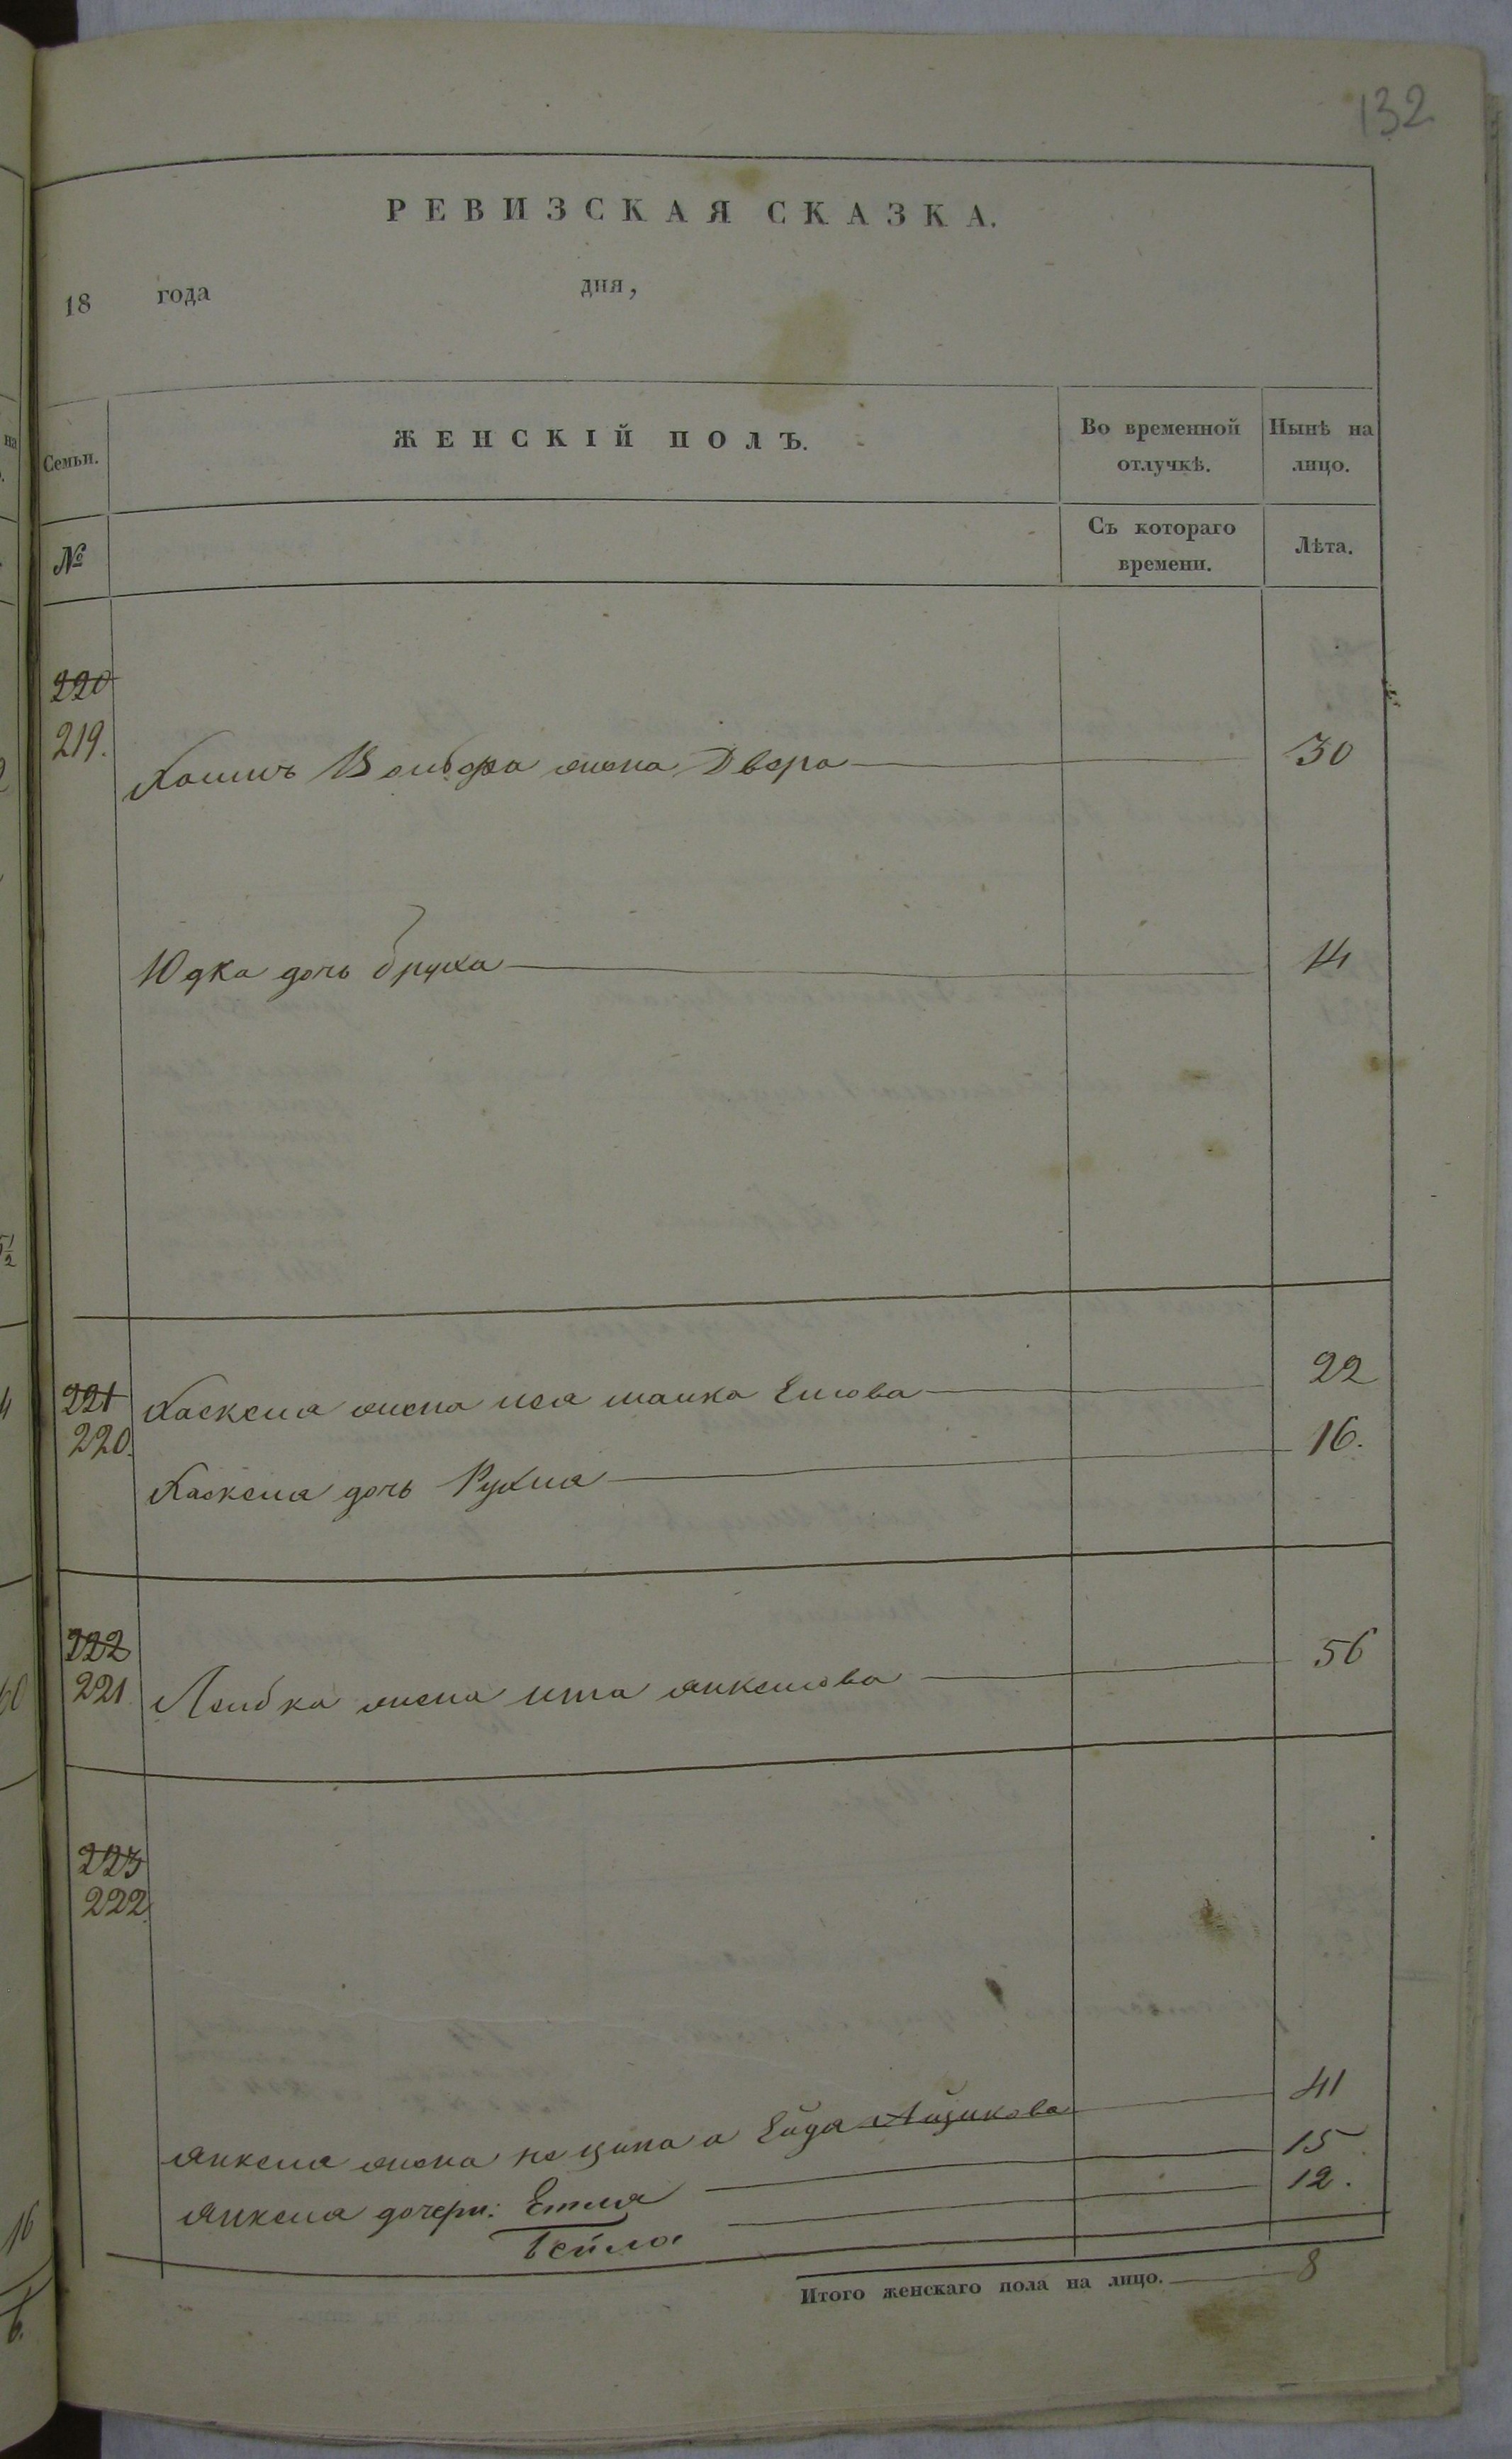 132
РЕВИЗСКАЯ СКАЗКА.
18 года дня,
Семьи.
ЖЕНСКІЙ ПОЛЪ.
Во временной отлучкѣ.
Нынѣ на лицо.
№
Съ котораго времени.
Лѣта.
220
219. Вольфа жена Двера 30
Юдка дочь бруха 14
221
220. Хаскеля жена Енова 22
Хаскеля дочь Рухля 16.
222
221 Лейбка жена ита янкелова 56
223
222
янкеля жена Ейда Айзикова 41
янкеля дочери: Етля 15
Бейла 12.
Итого женскаго пола на лицо. 8